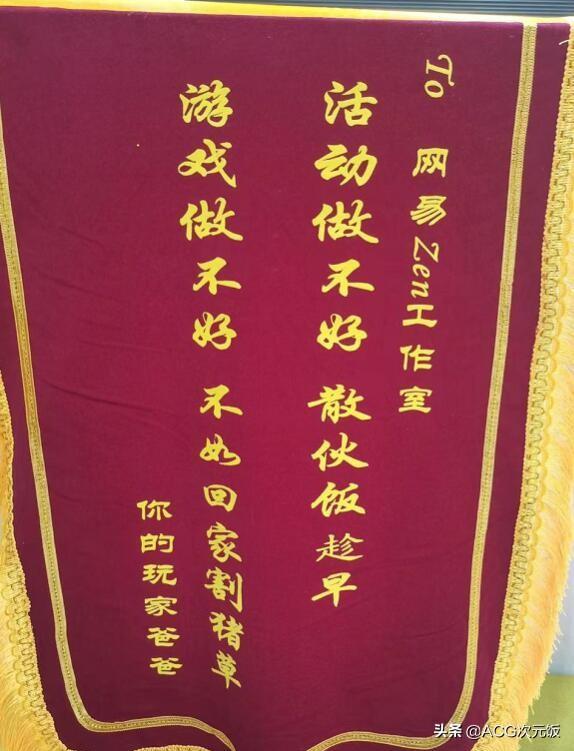 To 网易Zen工作室
活动做不好 散伙饭趁早
游戏做不好 不如回家割猪草
你的玩家爸爸
头条 @ACG次元饭